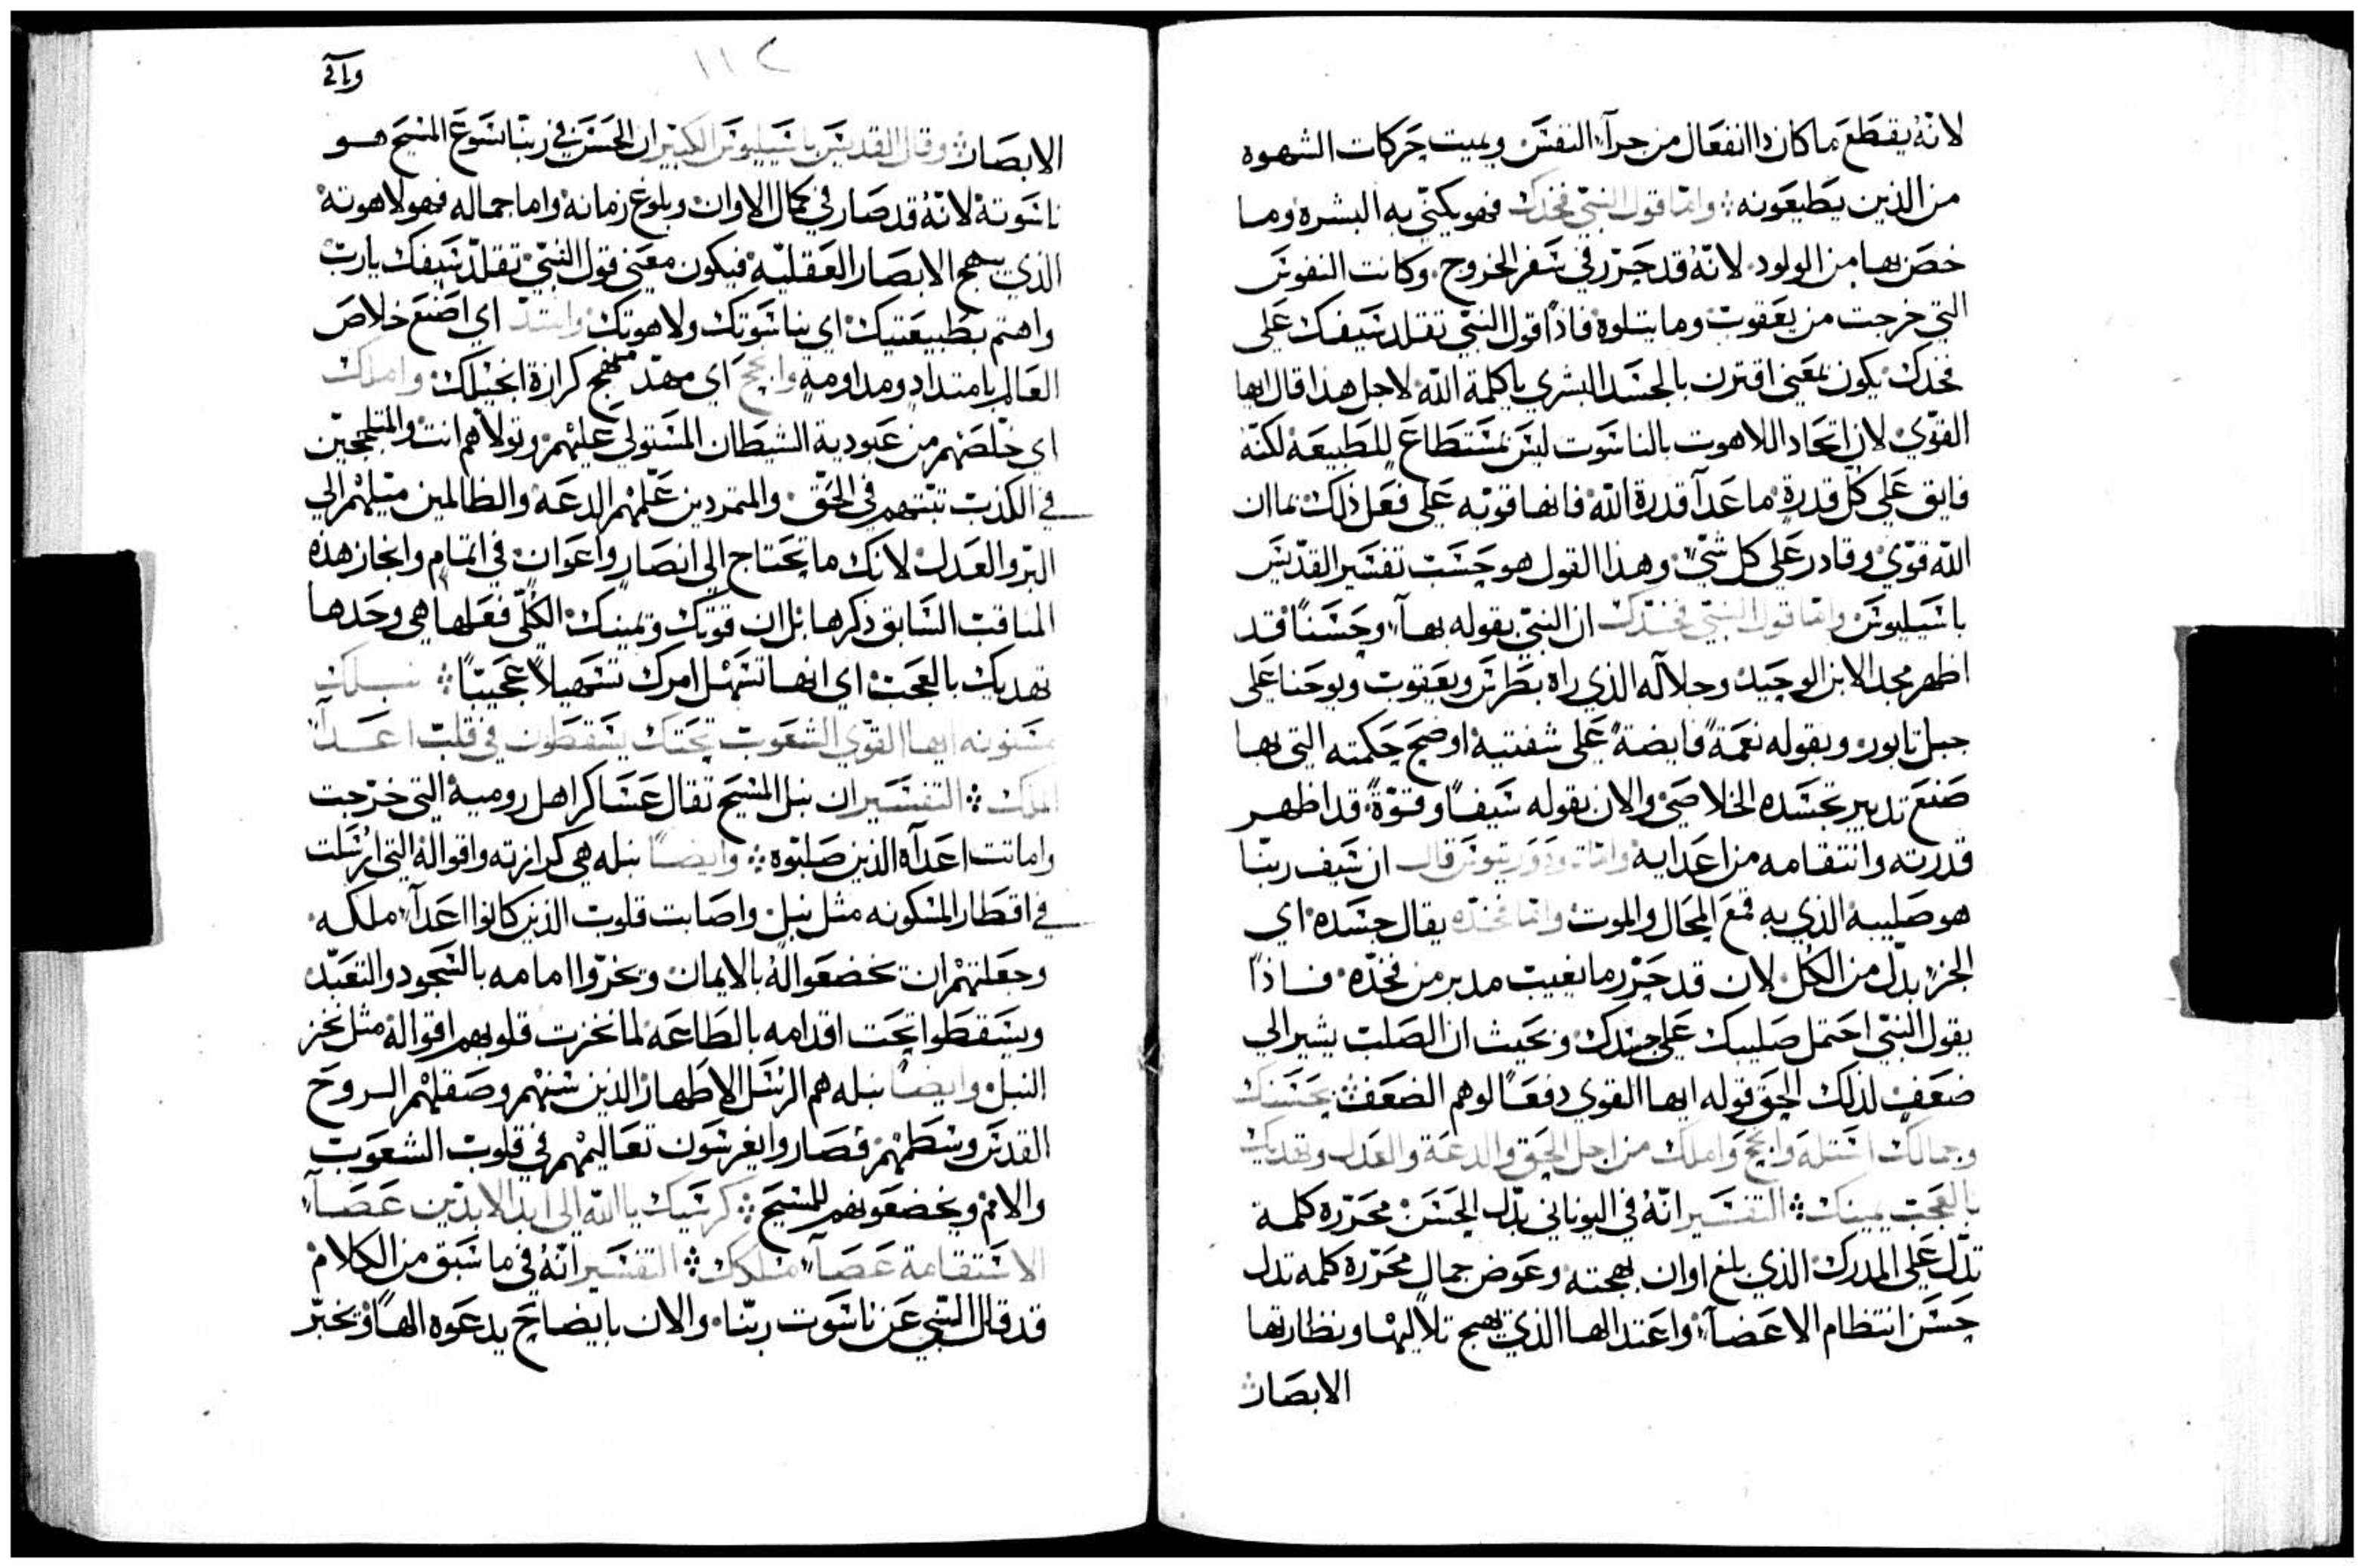 لانه يقطع ما كان ذا انفعال من جرآء النفس ويميت حركات الشهوه
من الذين يطيعونه ؞ واما قول النبي فخدك فهو يكني به البشره وما
خص بها من الولود. لانه قد حرر في سفر الخروج. وكانت النفوس
التي خرجت من يعقوب وما يتلوه فاذاً قول النبي تقلد سيفك على
فخدك يكون بمعني اقترن بالجسد البشري يا كلمة الله لاجل هذا قال ايها
القوي لان اتحاد اللاهوت بالناسوت ليس بمستطاع للطبيعه لكنه
فايق على كل قدرة ما عدآ قدرة الله فانها قويه على فعل ذلك بما ان
الله قوي وقادر على كل شي وهذا القول هو حسب تفسير القديس
باسيليوس واما قول النبي فخدك ان النبي بقوله بهآء وحسناً قد
اظهر مجد الابن الوحيد وجلاله الذي راه بطرس ويعقوب ويوحنا على
جبل تابور وبقوله نعمةً فايضةً على شفتيه اوضح حكمته التي بها
صنع تدبير تجسده الخلاصي والان بقوله سيفاً وقوةً قد اظهر
قدرته وانتقامه من اعدايه واما ثاودوريتوس قال ان سيف ربنا
هو صليبه الذي به قمع المحال والموت واما فخده يقال جسده اي
الجزء بدل من الكل لان قد حرر ما يغيب مدبر من فخده فاذاً
يقول النبي احتمل صليبك على جسدك وبحيث ان الصلب يشير الي
ضعف لذلك الحق قوله ايها القوي دفعاً لوهم الضعف بحسنك
وجمالك استله وانجح واملك من اجل الحق والدعة والعدل وتهديك
بالعجب يمينك ؞ التفسير انه في اليوناني بدل الحسن محرره كلمة
تدل على المدرك الذي بلغ اوان بهجته وعوض جمال محررة كلمه تدل
حسن انتظام الاعضآء واعتدالها الذي يبهج تلاليها ونظارتها
الابصار
وآتي
١١٢
الابصار وقال القديس باسيليوس الكبير ان الحسن في ربنا يسوع المسيح هو
ناسوته لانه قد صار في كمال الاوان وبلوغ زمانه واما جماله فهو لاهوته
الذي يبهج الابصار العقليه فيكون معني قول النبي تقلد سيفك يارب
واهتم بطبيعتيك اي بناسوتك ولاهوتك واستد اي اصنع خلاص
العالم بامتداد ومداومه وانجح اي مهد منهج كرازة انجيلك واملك
اي خلصهم من عبودية الشيطان المستولي عليهم وتولاهم انت والمتلججين
في الكذب ثبتهم في الحق والمتمردين علمهم الدعه والظالمين ميلهم الي
البر والعدل لانك ما تحتاج الى انصار واعوان في اتمام وانجاز هذه
المناقب السابق ذكرها بل ان قوتك ويمينك الكلي فعلها هي وحدها
تهديك بالعجب اي انها تسهل امرك تسهيلاً عجيباً ؞ نبلك
مسنونه ايها القوي الشعوب تحتك يسقطون في قلب اعدآء
الملك ؞ التفسير ان نبل المسيح تقال عساكر اهل روميه التي خرجت
واماتت اعدآه الذين صلبوه ؞ وايضاً نبله هي كرازته واقواله التي ارسلت
في اقطار المسكونه مثل نبل واصابت قلوب الذين كانوا اعدآء ملكه
وجعلتهم ان يخضعوا له بالايمان ويخروا امامه بالسجود والتعبد
ويسقطوا تحت اقدامه بالطاعه لما نخزت قلوبهم اقواله مثل نخز
النبل وايضاً نبله هم الرسل الاطهار الذين سنهم وصقلهم الروح
القدس وشطهم فصاروا يغرسون تعاليمهم في قلوب الشعوب
والامم ويخضعونهم للمسيح ؞ كرسيك يا الله الى ابد الابدين عصآء
الاستقامة عصآء ملكك ؞ التفسير انه في ما سبق من الكلام
قد قال النبي عن ناسوت ربنا. والان بايضاح يدعوه الهاً ويخبر